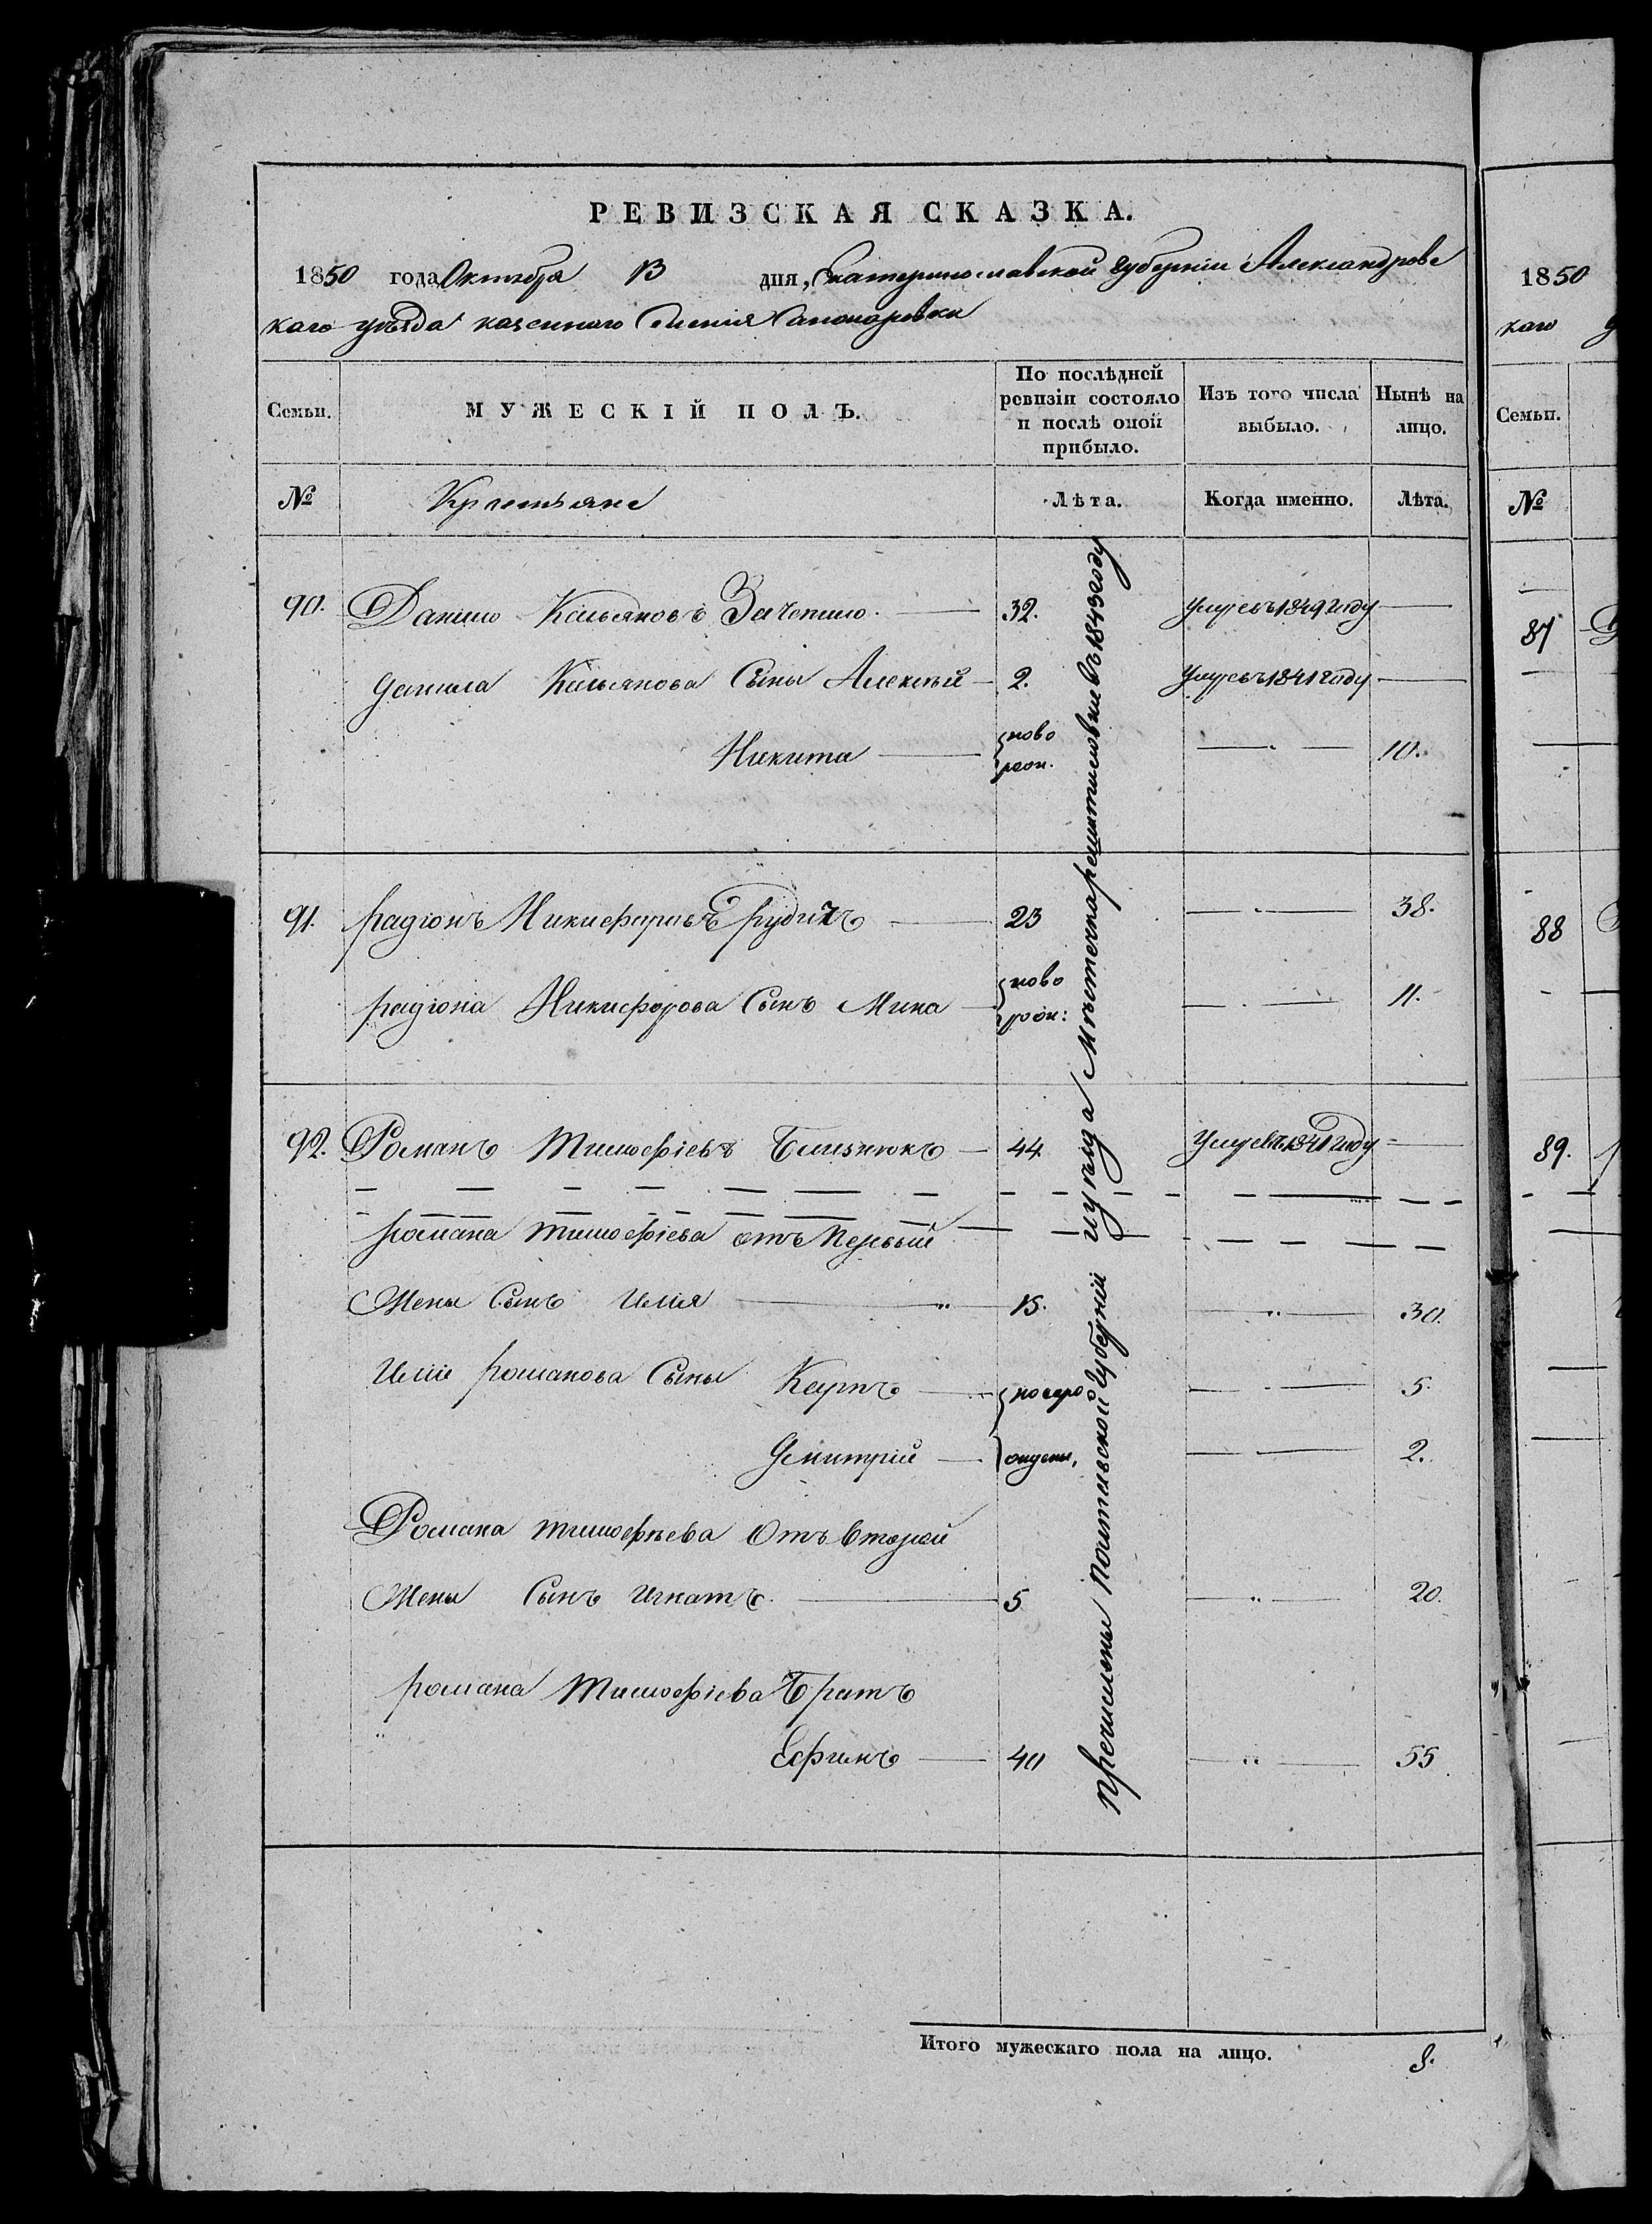 РЕВИЗСКАЯ СКАЗКА.
1850 года Октября 13 дня, Екатеринославской губерніи Александровс
каго уѣзда казенного Селенія
Семьи. МУЖЕСКІЙ ПОЛЪ. По послѣдней ревизіи состояло и послѣ оной прибыло. Изъ того числа выбыло. Нынѣ на лицо.
№ Крестьяне Лѣта. Когда именно. Лѣта.
90. Данило Касьяновъ 32. Умре въ 1849 году
Данила Касьянова Сыны Алексѣй 2. Умре въ 1841 году
Никита ново рож. 10.
91. радіонъ Никифоровъ рудичъ 23 38.
радіона Никифорова Сынъ Мина ново рож: 11.
92. Романъ Тимофіевъ Близнюкъ 44 Умре въ 1841 году
романа тимофіева отъ Первый
Жены Сынъ Илія 15. 30.
Иліи романова Сыны Карпъ новоро 5.
Дмитрій 2.
Романа тимофѣева Отъ Второй
Жены Сынъ Игнатъ 5 20.
романа Тимофіева Братъ
Ефимъ 40 55
Полтавской Губерніи уезда Местечка въ 1843 году
Итого мужескаго пола на лицо. 8.
1850
каго
Семьи.
№
87
88
89.